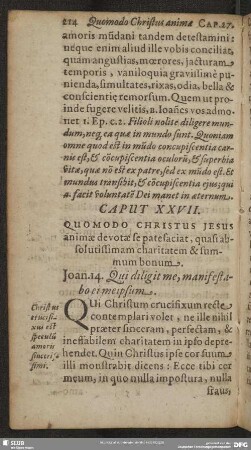 214 Quomodo Christus animæ CAP.27.
amoris mũdani tandem detestamini:
neque enim aliud ille vobis conciliat,
quam angustias, mœrores, jacturam
temporis, vaniloquia gravissimè pu-
nienda, simultates, rixas, odia, bella &
conscientiæ remorsum. Quem ut pro-
inde fugere velitis, s. Ioañes vos admo-
net 1. Ep. c. 2. Filioli nolite diligere mun-
dum, neq; ea quæ in mundo sunt. Quoniam
omne quod est in mũdo concupiscentia car-
nis est, & cõcupiscentia oculorũ, & superbia
vitæ, quæ nõ est ex patre, sed ex mũdo est. Et
mundus transibit, & cõcupiscentia ejus; qui
a. facit voluntatẽ Dei manet in æternum.
CAPUT XXVII.
QUOMODO CHRISTUS JESUS
animæ devotæ se patefaciat, quasi ab-
solutissimam charitatem & sum-
mum bonum.
Joan. 14. Qui diligit me, manifesta-
bo ei meipsum.
QUi Christum crucifixum recte
contemplari volet, ne ille nihil
præter sinceram, perfectam, &
ineffabilem charitatem in ipso depre-
hendet. Quin Christus ipse cor suum
illi monstrabit dicens: Ecce tibi cor
meum, in quo nulla impostura, nulla
fraus,
Christus
crucifi-
xus est
speculũ
amoris
sinceris-
simi.
SLUB
DFG